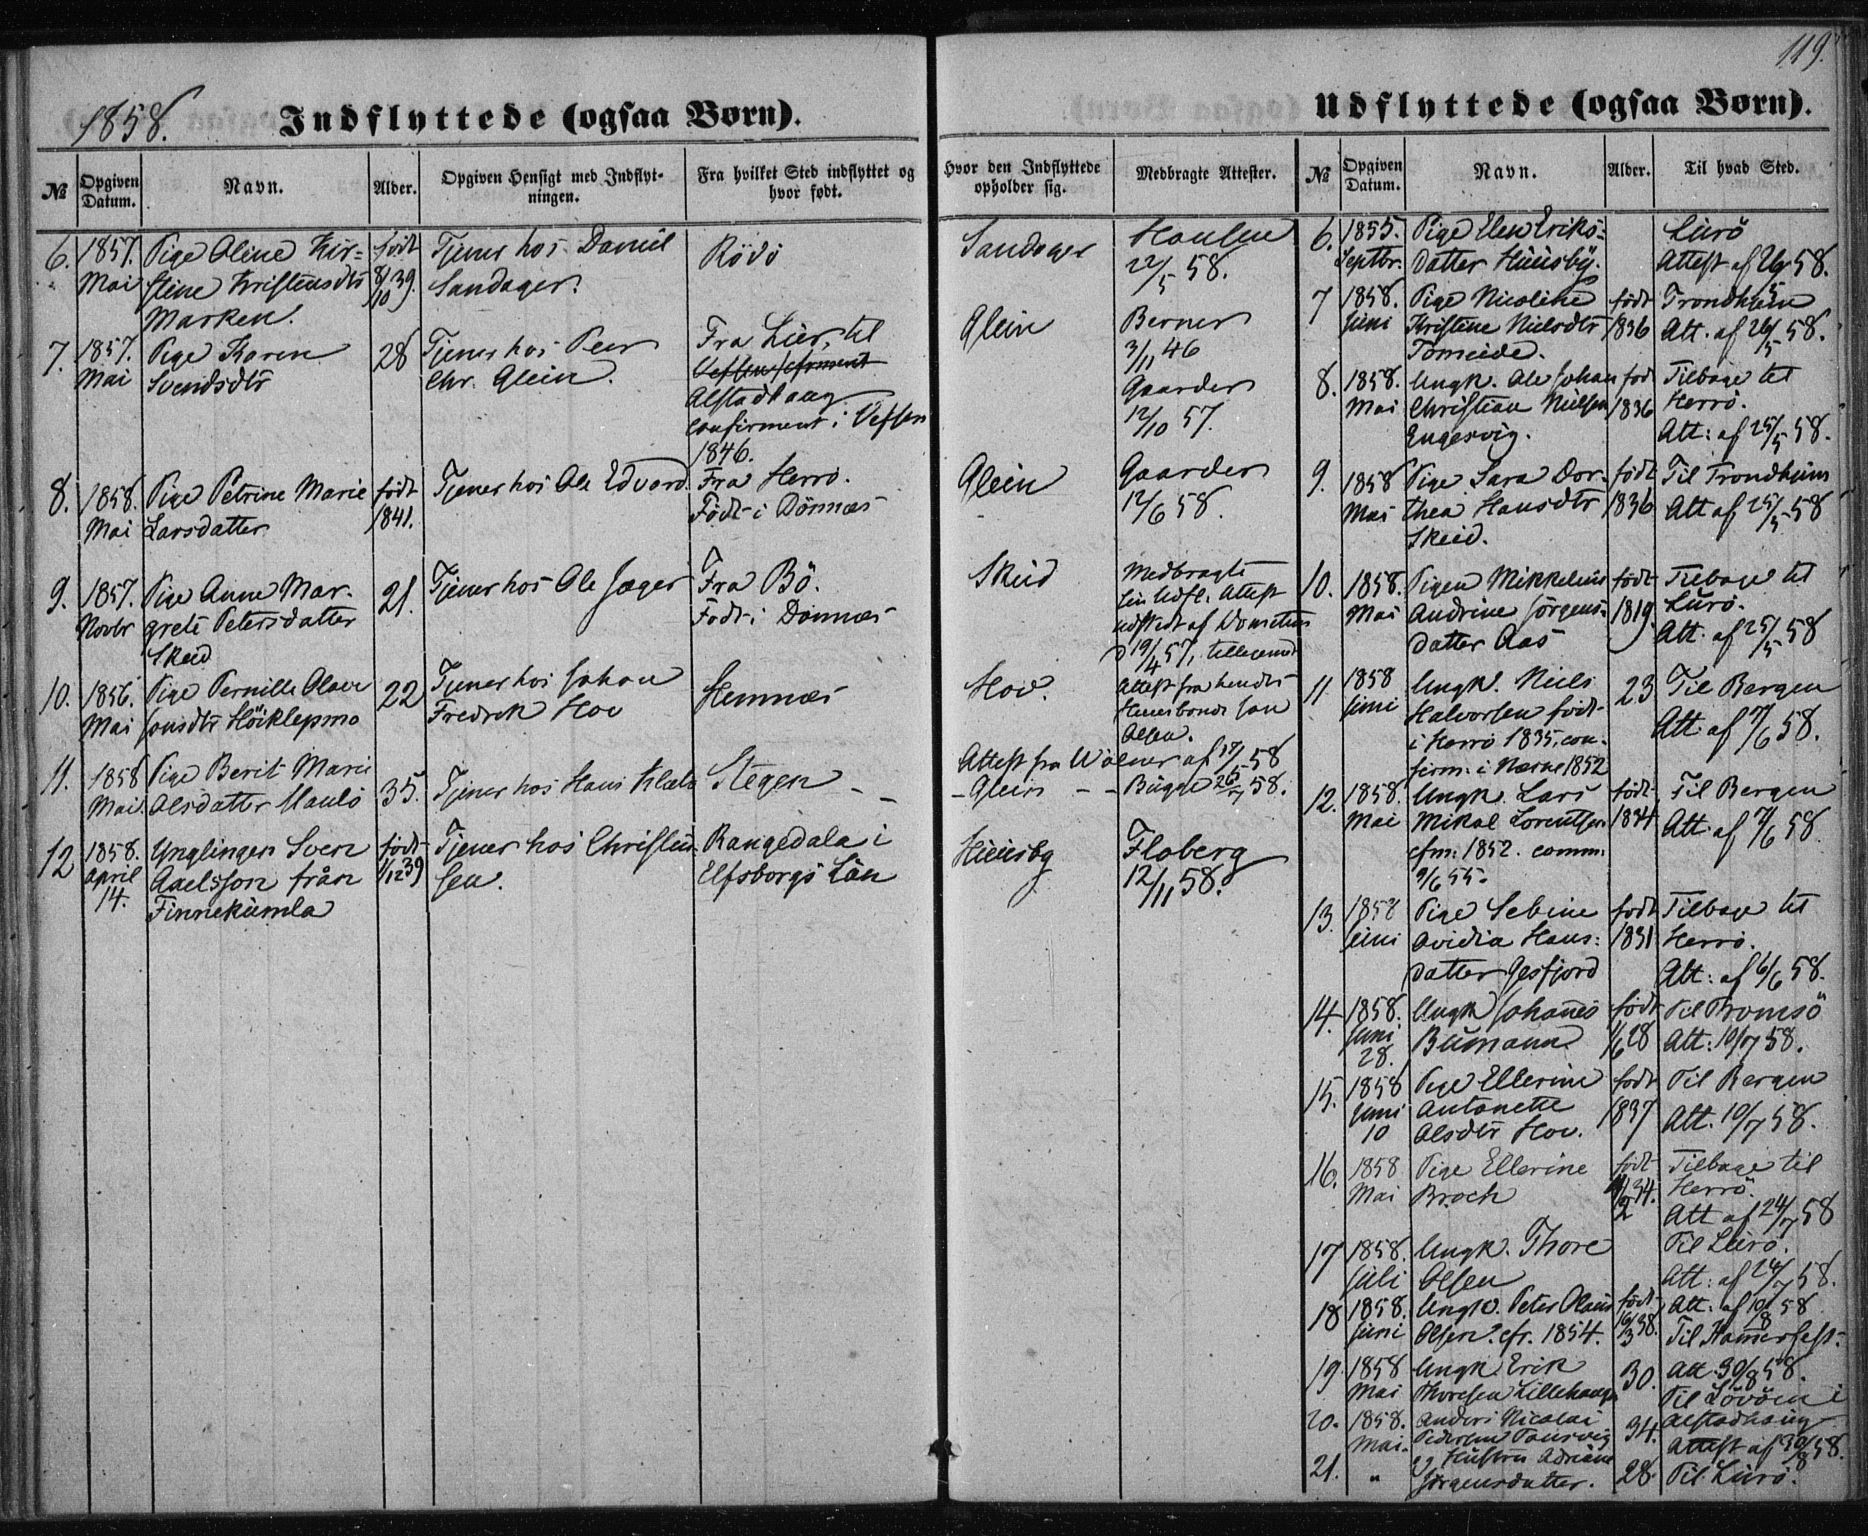 119.
1858.
Indflyttede (ogsaa Børn).
№
Opgiven Datum.
Navn.
Alder.
Opgiven Hensigt med Indflyt-
ningen.
Fra hvilket Sted indflyttet og
hvor født.
Hvor den Indflyttede
opholder sig.
Medbragte Attester.
6. 1857. Pige Oline Kir- født Tjener hos Daniel Rödö Sandager Hansen
Mai stine Kristensdtr 8/10 39. Sandager. 22/5 58.
Marken.
7. 1857. Pige Karen 28 Tjener hos Peer Fra Lier, til Glein Berner
Mai Svendsdtr Chr. Glein. 3/11 46
Alstadhaug Gaarder
confirment i Vefsen 12/10 57.
1846.
8. 1858. Pige Petrine Marie født Tjener hos Ole Edvard Fra Herrö. Glein Gaarder
Mai Larsdatter 1841. Födt i Dönnæs 12/6 58.
9. 1857. Pige Anne Mar- 21. Tjener hos Ole Jæger Fra Bö. Skeid Medbragte
Novbr grete Petersdatter Födt i Dönnæs sin Udfl. Attest
Skeid udstedt af
d 19/4 57,
10. 1856. Pige Pernille Olave 22 Tjener hos Johan Hemnæs Hov. Attest fra hendes
Mai Jonsdtr Höiklepmo Fredrik Hov Huusbonde Jon
Olsen.
11. 1858 Pige Berit Marie 35. Tjener hos Hans Stegen Attest fra 58
Mai Olsdatter - Glein - Bugge 26/7 58.
12 1858. Ynglingen Sven født Tjener hos Christen- Rangedala i Huusby Floberg
April Axelsson från 1/12 39 sen. Elfsborgs Län 12/11 58.
14. Finnekumla
Udflyttede (ogsaa Børn).
№
Opgiven Datum.
Navn.
Alder.
Til hvad Sted.
6. 1855. Pige Elen Eriks- Lurö
Septbr. datter Huusby. Attest af 26/5 58.
7 1858. Pige Nicoline født Trondhjem
Juni Kristine Nielsdtr 1836 Att. af 26/5 58.
Tomeide.
8. 1858. Ungk. Ole Johan født Tilbage til
Mai Christian Nielsen 1836 Herrö.
Engesvig. Att: af 25/5 58.
9. 1858 Pige Sara Dor- født Til Trondhjem
Mai thea Hansdtr 1836 Att af 25/5 58
Skeid.
10. 1858 Pigen Mikkeline født Tilbage til
Mai Andrine Jörgens- 1819. Lurö.
datter Aas Att: af 25/5 58
11 1858 Ungk. Niels 23 Til Bergen
Juni Halvorsen født Att af 7/6 58.
i Herrö 1835, con-
firm: i Nærne 1852
12. 1858. Ungk. Lars født Til Bergen
Mai Mikal Lorentsen 1834 Att: af 7/6 58
cfm: 1852. comm:
9/6 55.
13. 1858 Pige Sebine født Tilbage til
Juni Ovidia Hans- 1831 Herrö.
datter Gesfjord Att: af 6/6 58.
14. 1858. Ungk Johanes født Til Tromsö
Juni Bumann 1/6 28 Att: 10/7 58.
28.
15. 1858 Pige Ellerine født Til Bergen
Juni Antonette 1837 Att. 10/7 58.
10 Olsdtr Hov.
16. 1858 Pige Ellerine født Tilbage til
Mai Broch 34. Herrö
Att af 24/7 58
17 1858. Ungk. Thore Til Lurö.
Juli Olsen Att: af 24/7 58.
18 1858. Ungk. Peter Olaus født Att. af 10/8 58
Juni Olsen. cfr. 1854. 16/3 38. Til Hamerfest.
19 1858 Ungk Erik 30. Att 30/8 58.
Mai Thoresen Lillehaugen Til i
20. 1858. Anders Nicolai 34. Alstadhaug
Mai. Pedersen Attest af 30/8 58.
21. " og Hustru Adriane
Jörgensdatter. 28 Til Lurö.